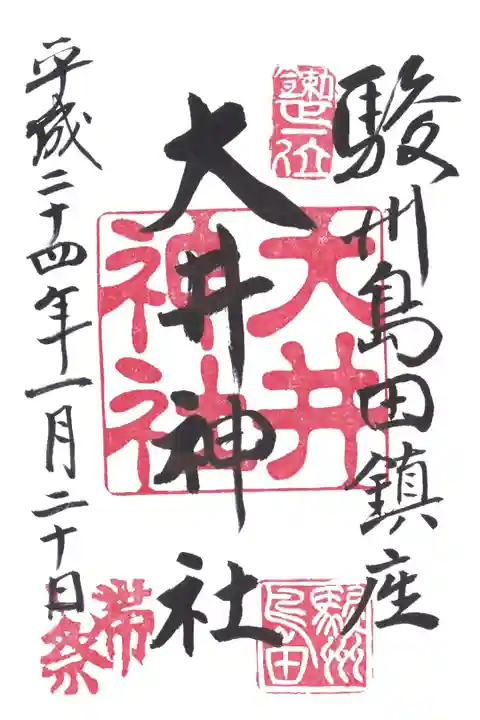 駿州島田鎮座
大井神社
平成二十四年一月二十日
大井
神社
駿州
島田
帯
祭